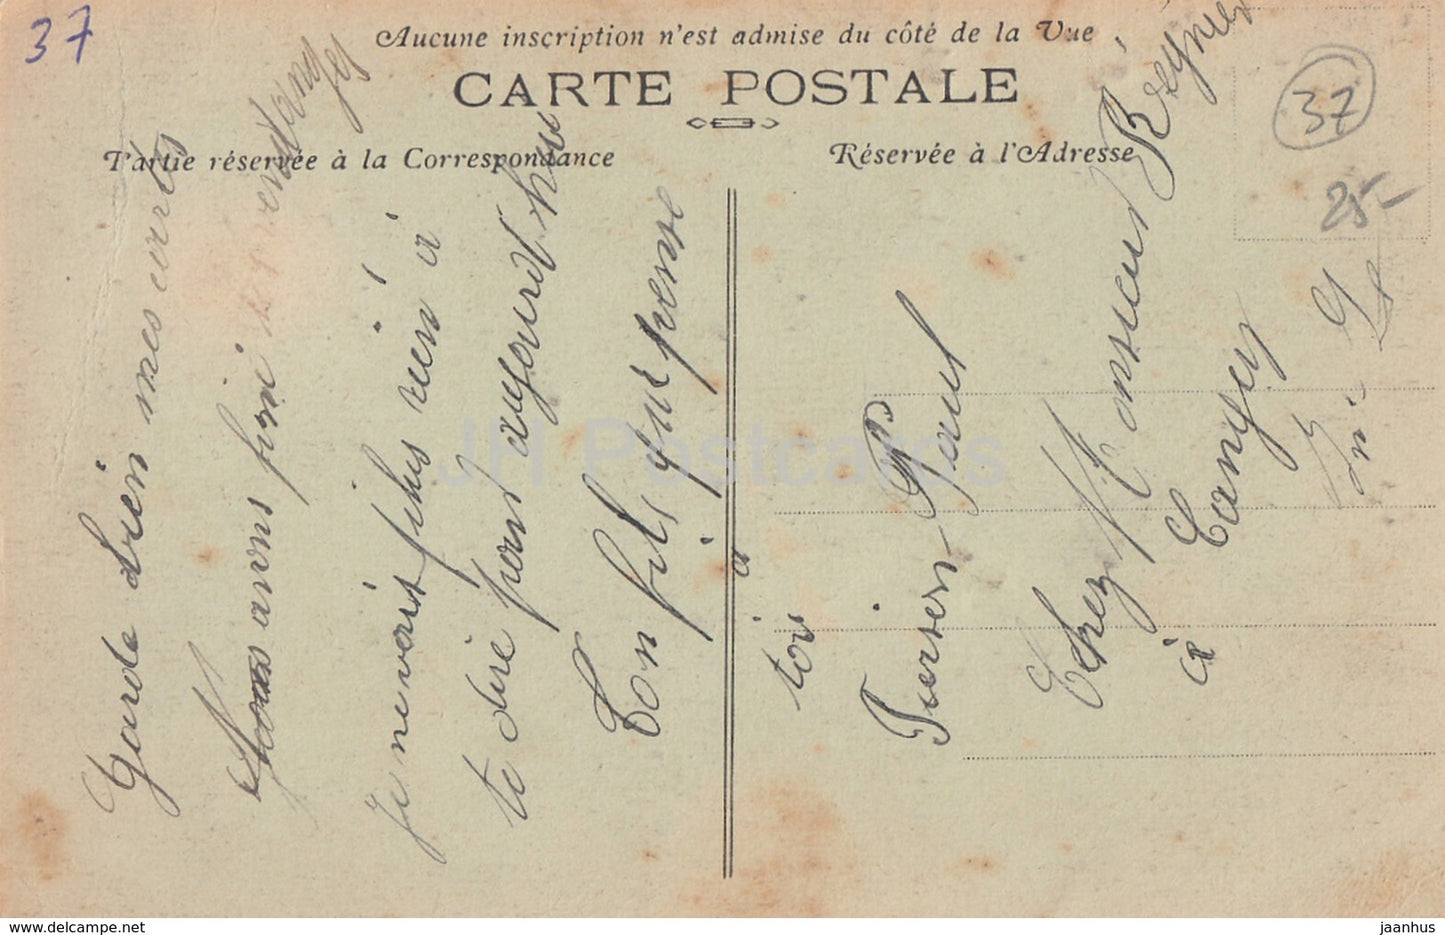 37
Aucune inscription n'est admise du côté de la Vue
CARTE POSTALE
Partie réservée à la Correspondance
Réservée à l'Adresse
37
25-
Garde bien mes cartes
Nous avons fini vendanges
Je ne vois plus rien à
te dire pour aujourd'hui
Ton fils qui pense
à
toi
Paul
Chez Monsieur Régnier
à
JH Postcards
www.delcampe.net
jaanhus